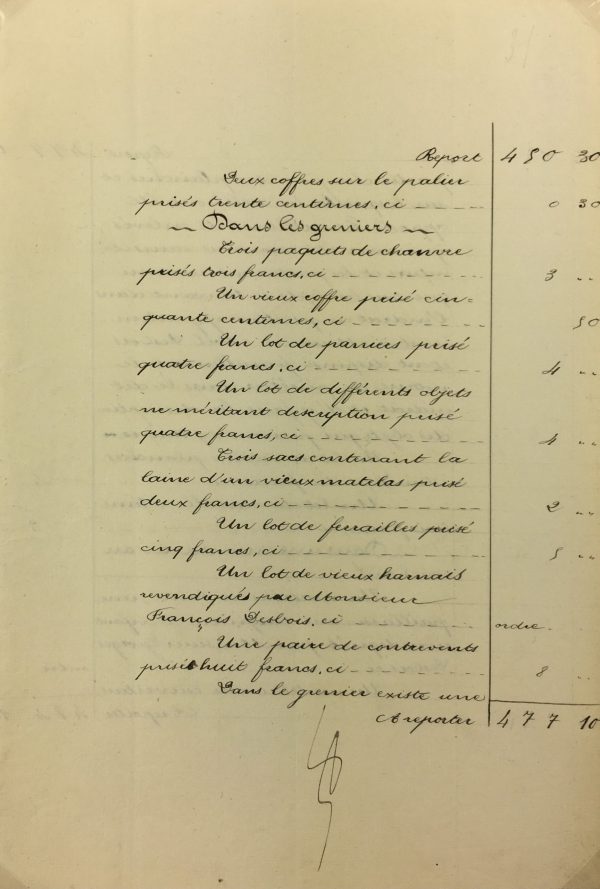 Report 450 30
Deux coffres sur le palier
prisés trente centimes, ci _ _ _ _ 0 30
~ Dans les greniers ~
Trois paquets de chanvre
prisés trois francs, ci _ _ _ _ _ _ _ 3 ..
Un vieux coffre prisé cin=
quante centimes, ci _ _ _ _ _ _ 50
Un lot de paniers prisé
quatre francs, ci _ _ _ _ _ _ _ _ 4 ..
Un lot de différents objets
ne méritant description prisé
quatre francs, ci _ _ _ _ _ _ _ _ 4 ..
Trois sacs contenant la
laine d'un vieux matelas prisé
deux francs, ci _ _ _ _ _ _ _ _ _ 2 ..
Un lot de ferrailles prisé
cinq francs, ci _ _ _ _ _ _ _ _ _ 5 ..
Un lot de vieux harnais
revendiqués par Monsieur
François Desbois, ci _ _ _ _ _ _ ordre
Une paire de contrevents
prisés huit francs, ci _ _ _ _ _ _ 8 ..
Dans le grenier existe une
A reporter 477 10